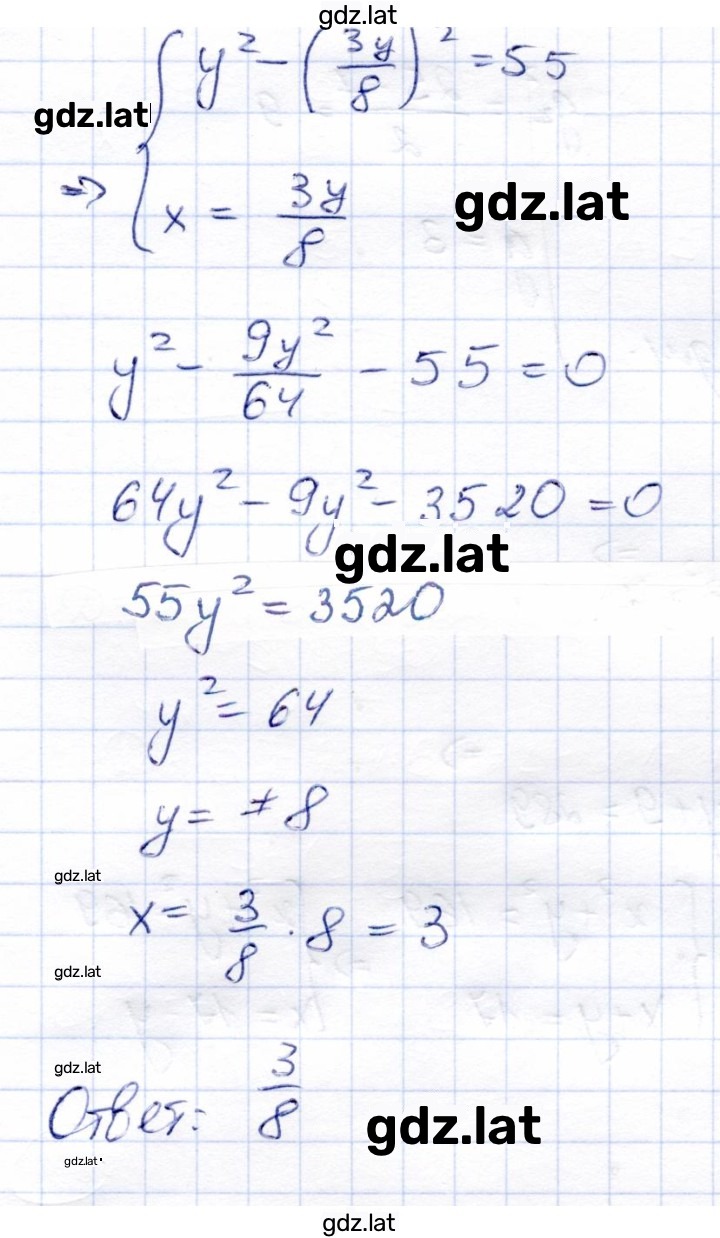 gdz.lat
y² - (3y/8)² = 55
gdz.lat
⇒ x = 3y/8
gdz.lat
y² - 9y²/64 - 55 = 0
64y² - 9y² - 3520 = 0
gdz.lat
55y² = 3520
y² = 64
y = ± 8
gdz.lat
x = 3/8 · 8 = 3
gdz.lat
gdz.lat
Ответ: 3/8
gdz.lat
gdz.lat
gdz.lat